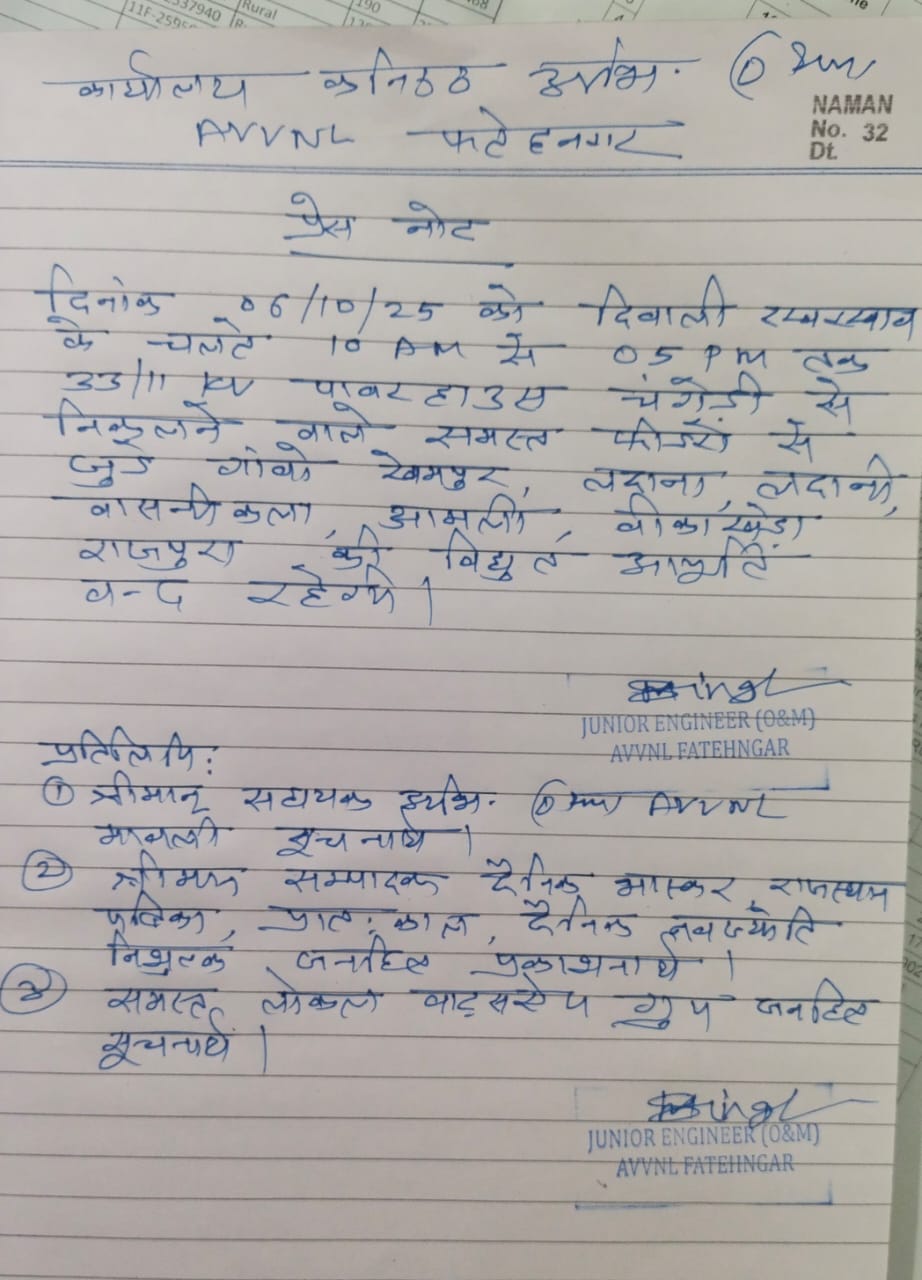 537940 Rural 190
11F-2595
कार्यालय कनिष्ठ अभि.
AVVNL फतेहनगर
NAMAN
No. 32
Dt.
प्रेस नोट
दिनांक 06/10/25 को दिवाली रखरखाव
के चलते 10 AM से 05 PM तक
33/11 KV पावर हाउस चंगेड़ी से
निकलने वाले समस्त फीडरों से
जुड़े गांवो खेमपुर, लदाना, लदानी,
वासनीकला, आमली, वीकाखेडा
राजपुरा की विद्युत आपूर्ति
बन्द रहेगी।
JUNIOR ENGINEER (O&M)
AVVNL FATEHNGAR
प्रतिलिपि:
① श्रीमान् सहायक अभि. AVVNL
मावली सूचनार्थ।
② श्रीमान सम्पादक दैनिक भास्कर, राजस्थान
पत्रिका, प्रातःकाल, दैनिक नवज्योति
निशुल्क जनहित प्रकाशनार्थ।
③ समस्त लोकल वाट्सएप ग्रुप जनहित
सूचनार्थ।
JUNIOR ENGINEER (O&M)
AVVNL FATEHNGAR